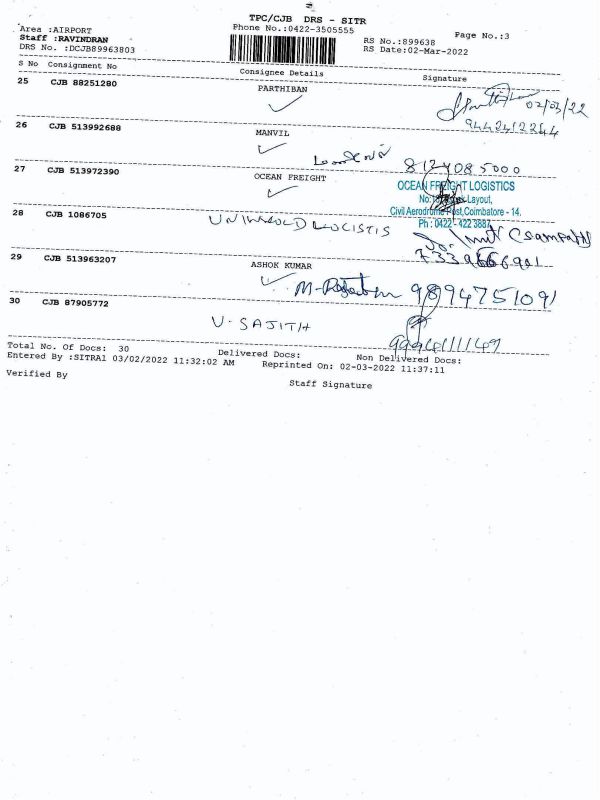 TPC/CJB DRS - SITR
Area :AIRPORT
Phone No.:0422-3505555
Page No.:3
Staff :RAVINDRAN
RS No.:899638
DRS No. :DCJB89963803
RS Date:02-Mar-2022
S No Consignment No Consignee Details Signature
25 CJB 88251280 PARTHIBAN
02/03/22
9442412244
26 CJB 513992688 MANVIL
8124085000
27 CJB 513972390 OCEAN FREIGHT
OCEAN FREIGHT LOGISTICS
Layout,
Civil Aerodrome Post, Coimbatore - 14.
Ph : 0422 - 422 3887
28 CJB 1086705 UNIWORLD LOGISTIS
29 CJB 513963207 ASHOK KUMAR
9894751091
30 CJB 87905772 V. SAJITH
Total No. Of Docs: 30 Delivered Docs: Non Delivered Docs:
Entered By :SITRA1 03/02/2022 11:32:02 AM Reprinted On: 02-03-2022 11:37:11
Verified By
Staff Signature